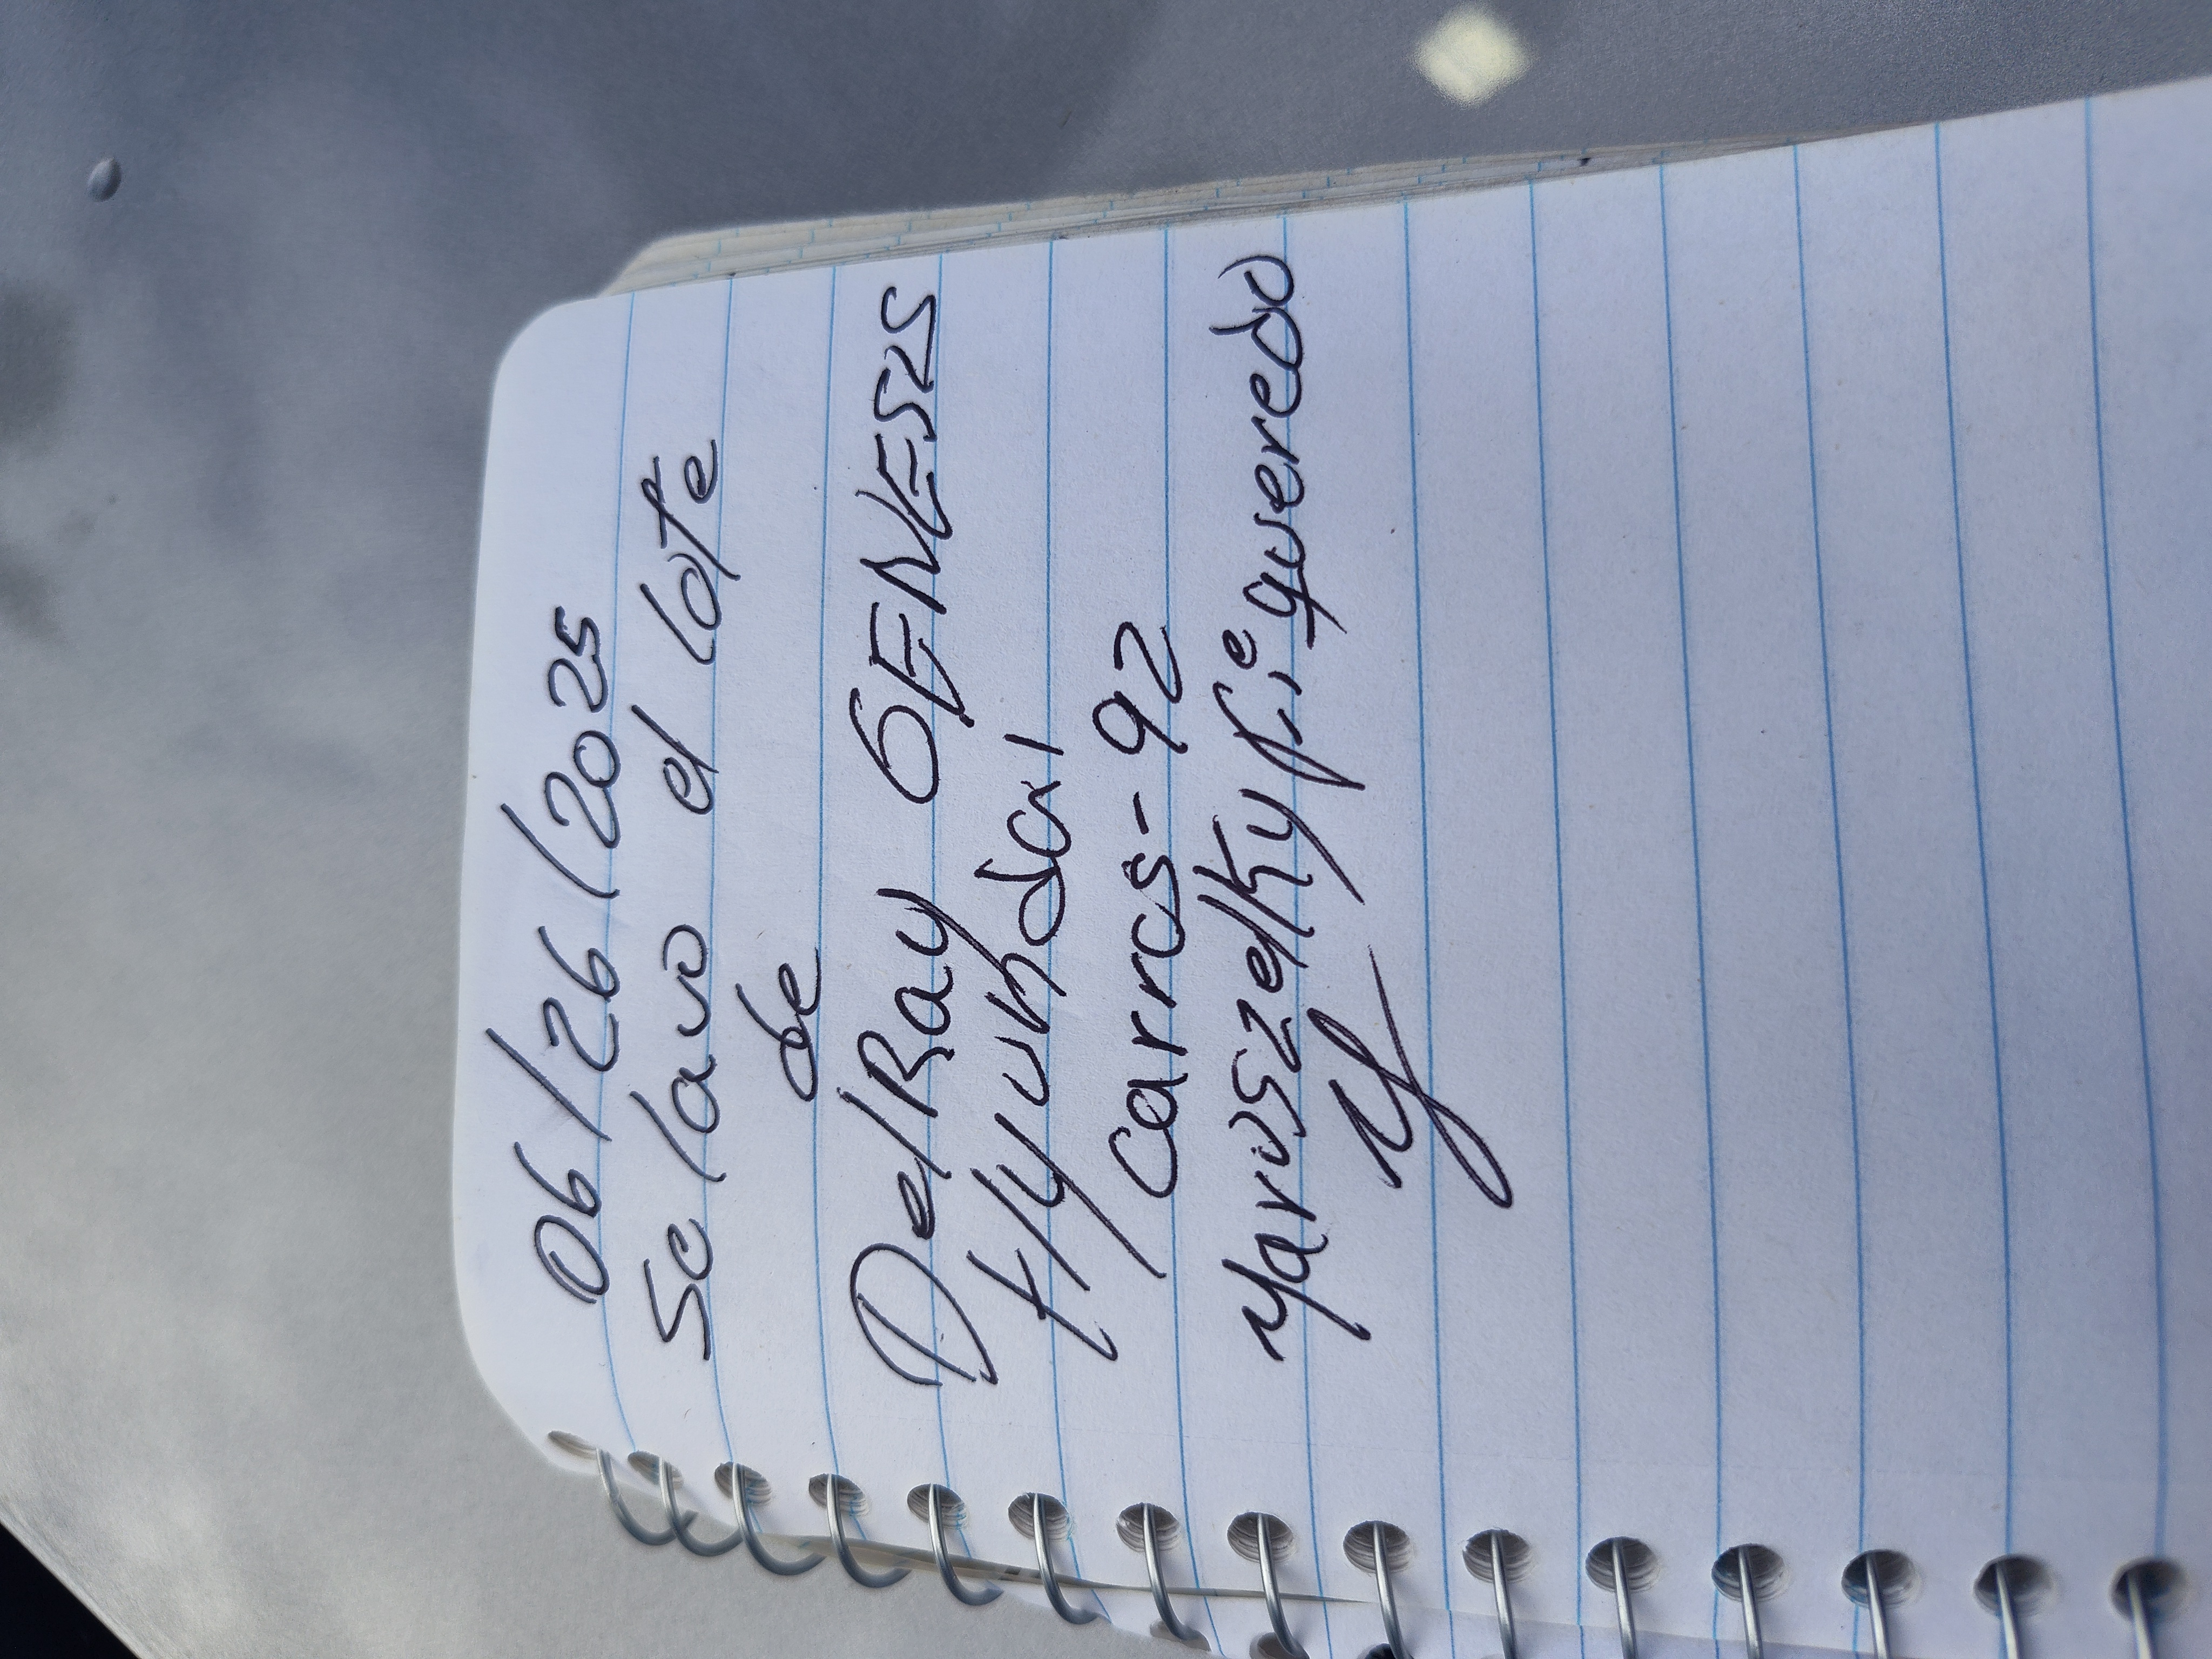 06/26/2025
Se lavo el lote
de
DelRay GENESIS
Hyundai
Carros-92
Yaruszelky figueredo